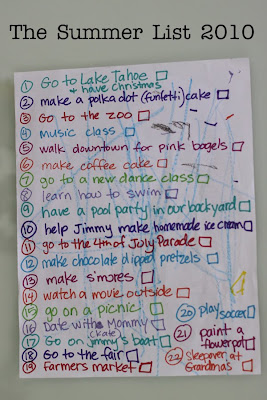 The Summer List 2010
① Go to Lake Tahoe
+ have Christmas
② make a polka dot (funfetti) cake
③ Go to the zoo
④ music class
⑤ walk downtown for pink bagels
⑥ make coffee cake
⑦ go to a new dance class
⑧ learn how to swim
⑨ have a pool party in our backyard
⑩ help Jimmy make homemade ice cream
⑪ go to the 4th of July Parade
⑫ make chocolate dipped pretzels
⑬ make s'mores
⑭ watch a movie outside
⑮ go on a picnic
⑯ Date with Mommy
(Kate)
⑰ Go on Jimmy's boat
⑱ Go to the fair
⑲ farmers market
⑳ play soccer
㉑ paint a
flowerpot
㉒ Sleepover at
Grandmas